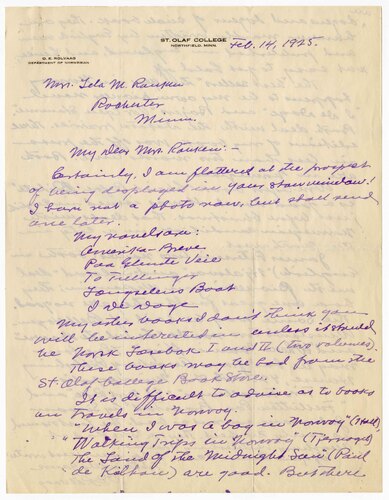 ST. OLAF COLLEGE
NORTHFIELD, MINN.
O. E. ROLVAAG
DEPARTMENT OF NORWEGIAN
Feb. 14, 1925.
Mrs. M.
Rochester
Minn.
My dear Mrs. :-
Certainly, I am flattered at the prospect
of being displayed in your show window!
I have not a photo now, but shall send
one later.
My novels are:
Amerika-Breve
Paa Glemte Veie
To Tullinger
Længselens Baat
I de Dage
My other books I don't think you
will be interested in unless it should
be Norsk Læsebok I and II (two volumes)
These books may be had from the
St. Olaf College Book Store.
It is difficult to advise as to books
on travels in Norway.
"When I was a boy in Norway" (Hall)
"Walking Trips in Norway"
"The Land of the Midnight Sun" (Paul
du Chaillu) are good. But there